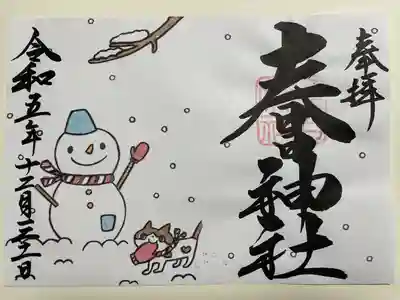 奉拝
春日神社
令和五年十二月 日